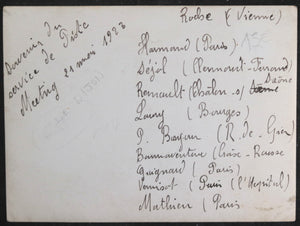 Souvenir du
service de Piste
Meeting 21 mai 1923
Roche (Vienne)
Harmand (Paris)
15€
Déjol (Clermont-Ferrand)
Renault (Châlon s/ Saône
Lavay (Bourges
P. Bayon (R. de Gier
Bonnaventure (Croix-Rousse
Guignard (Paris)
Vernisot (Paris (l'Hopital)
Mathieu (Paris